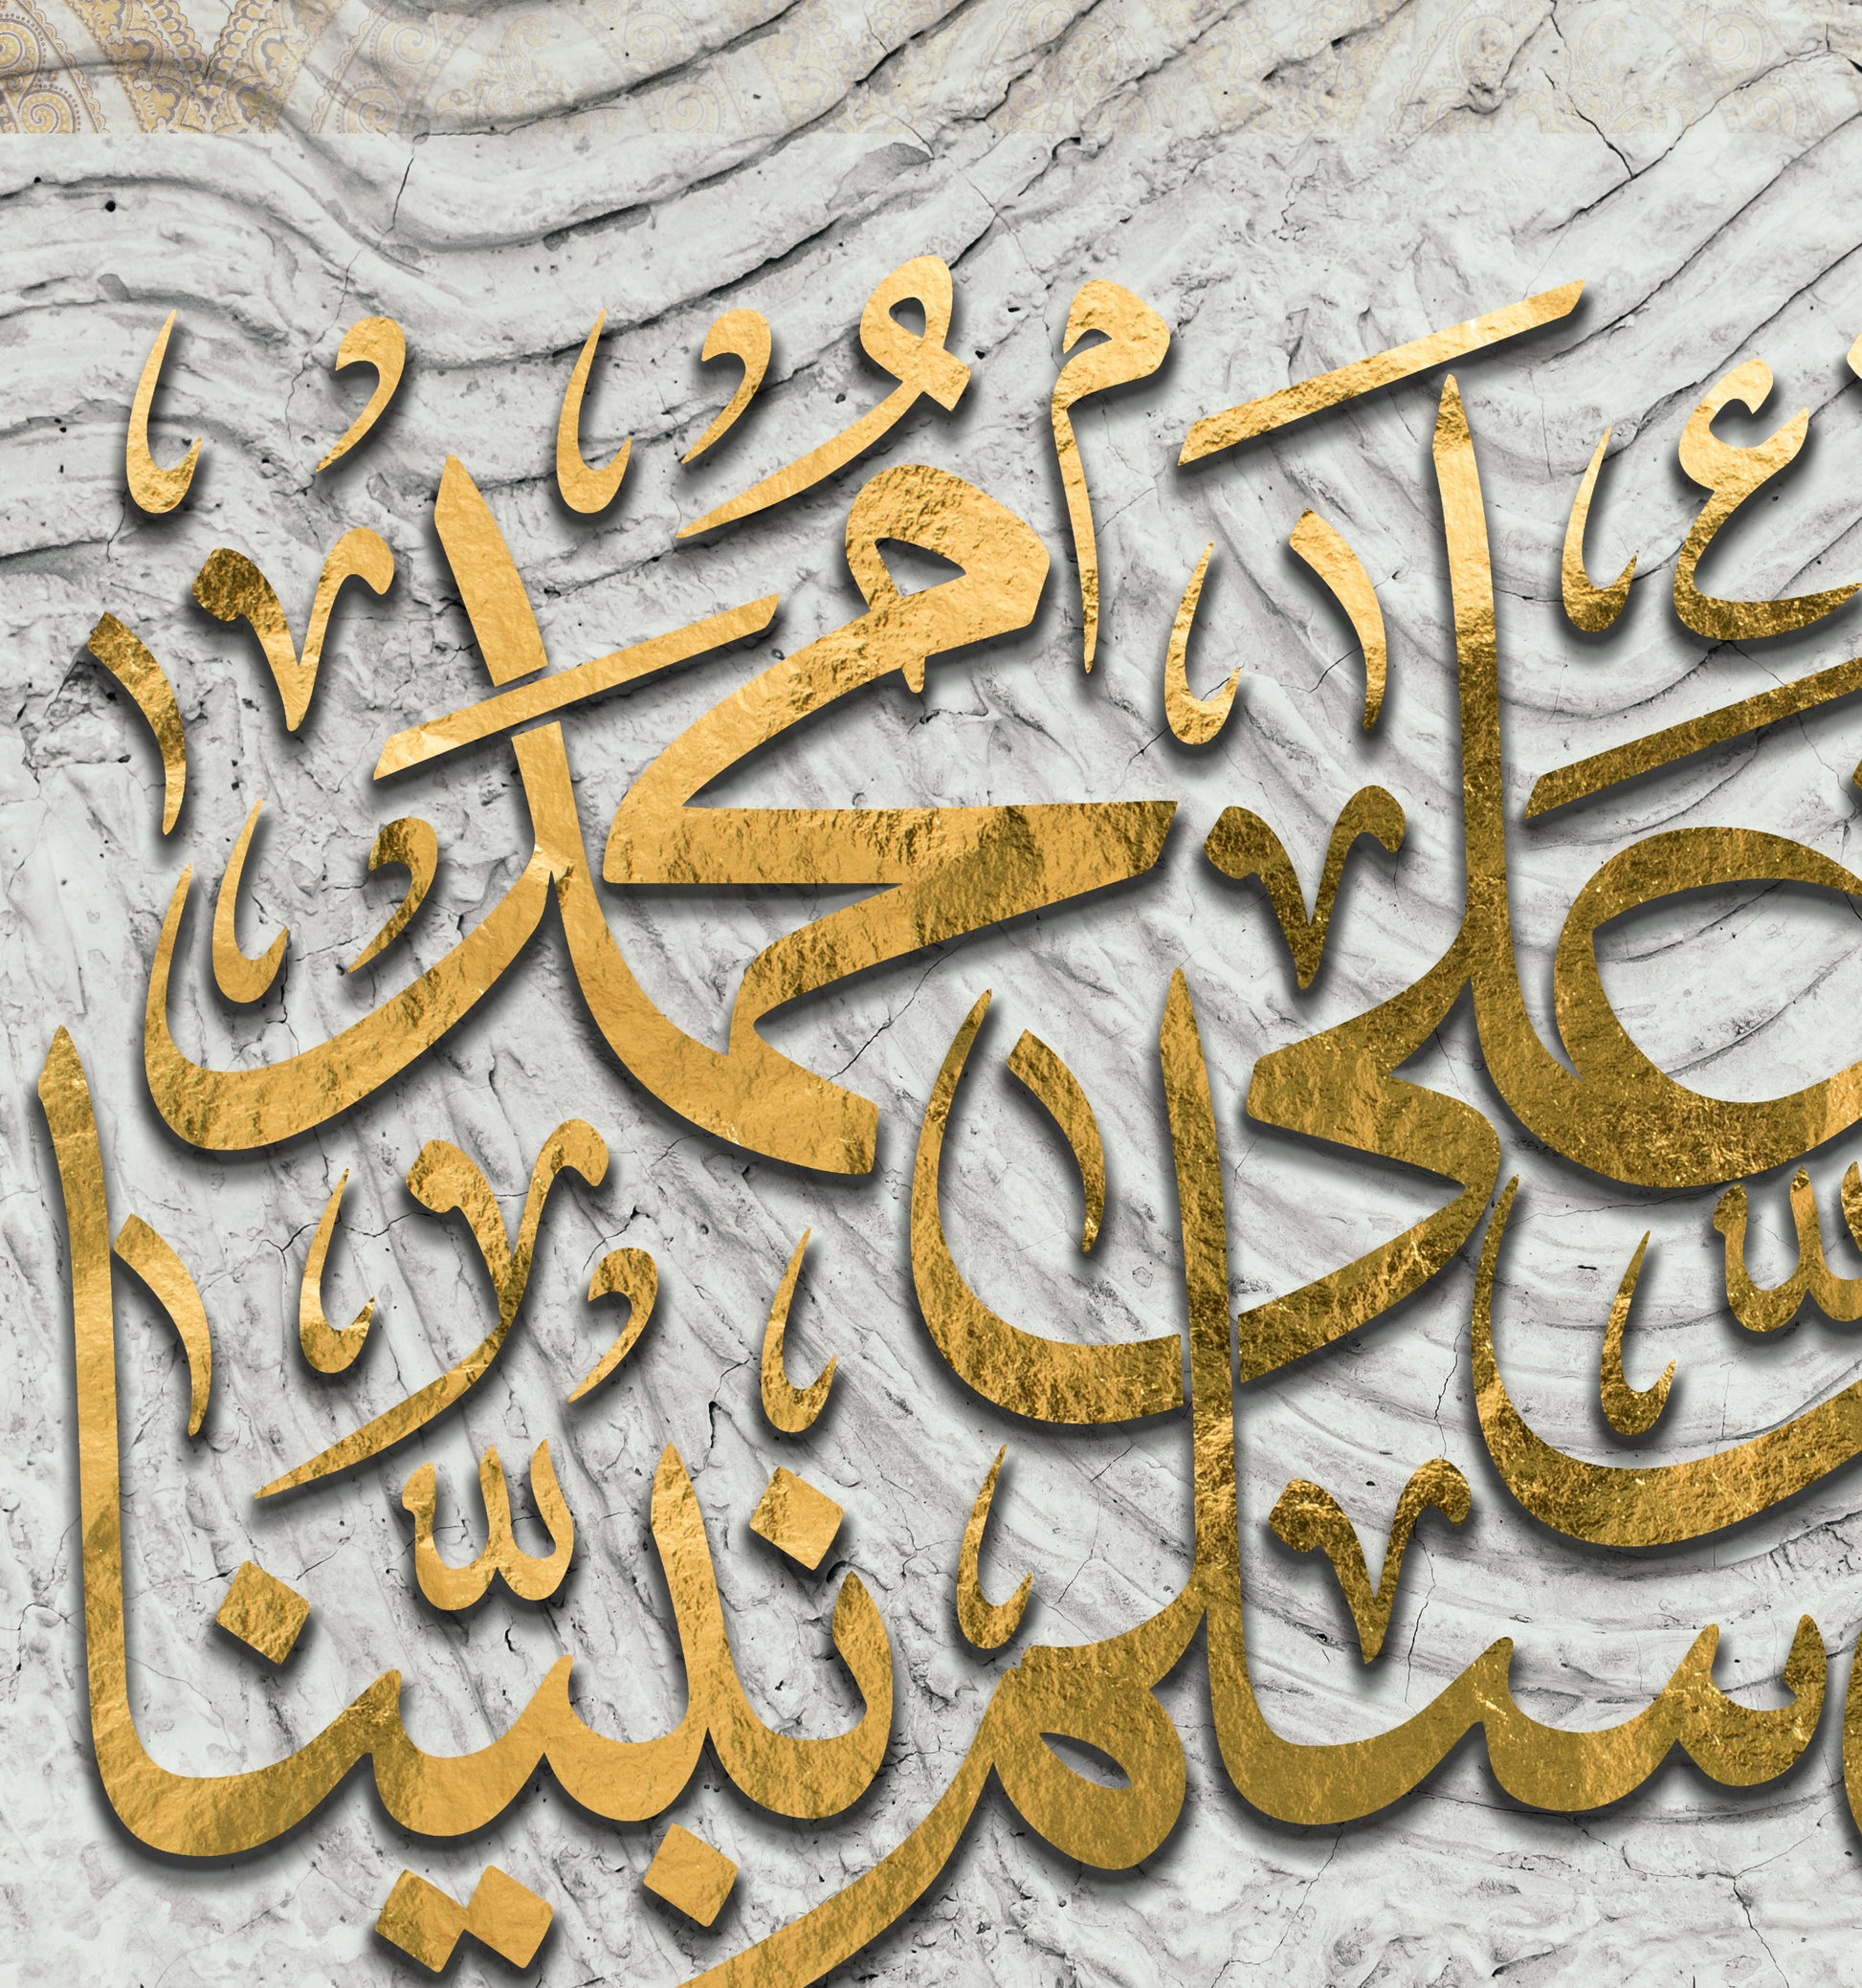 على محمد
سلم نبينا